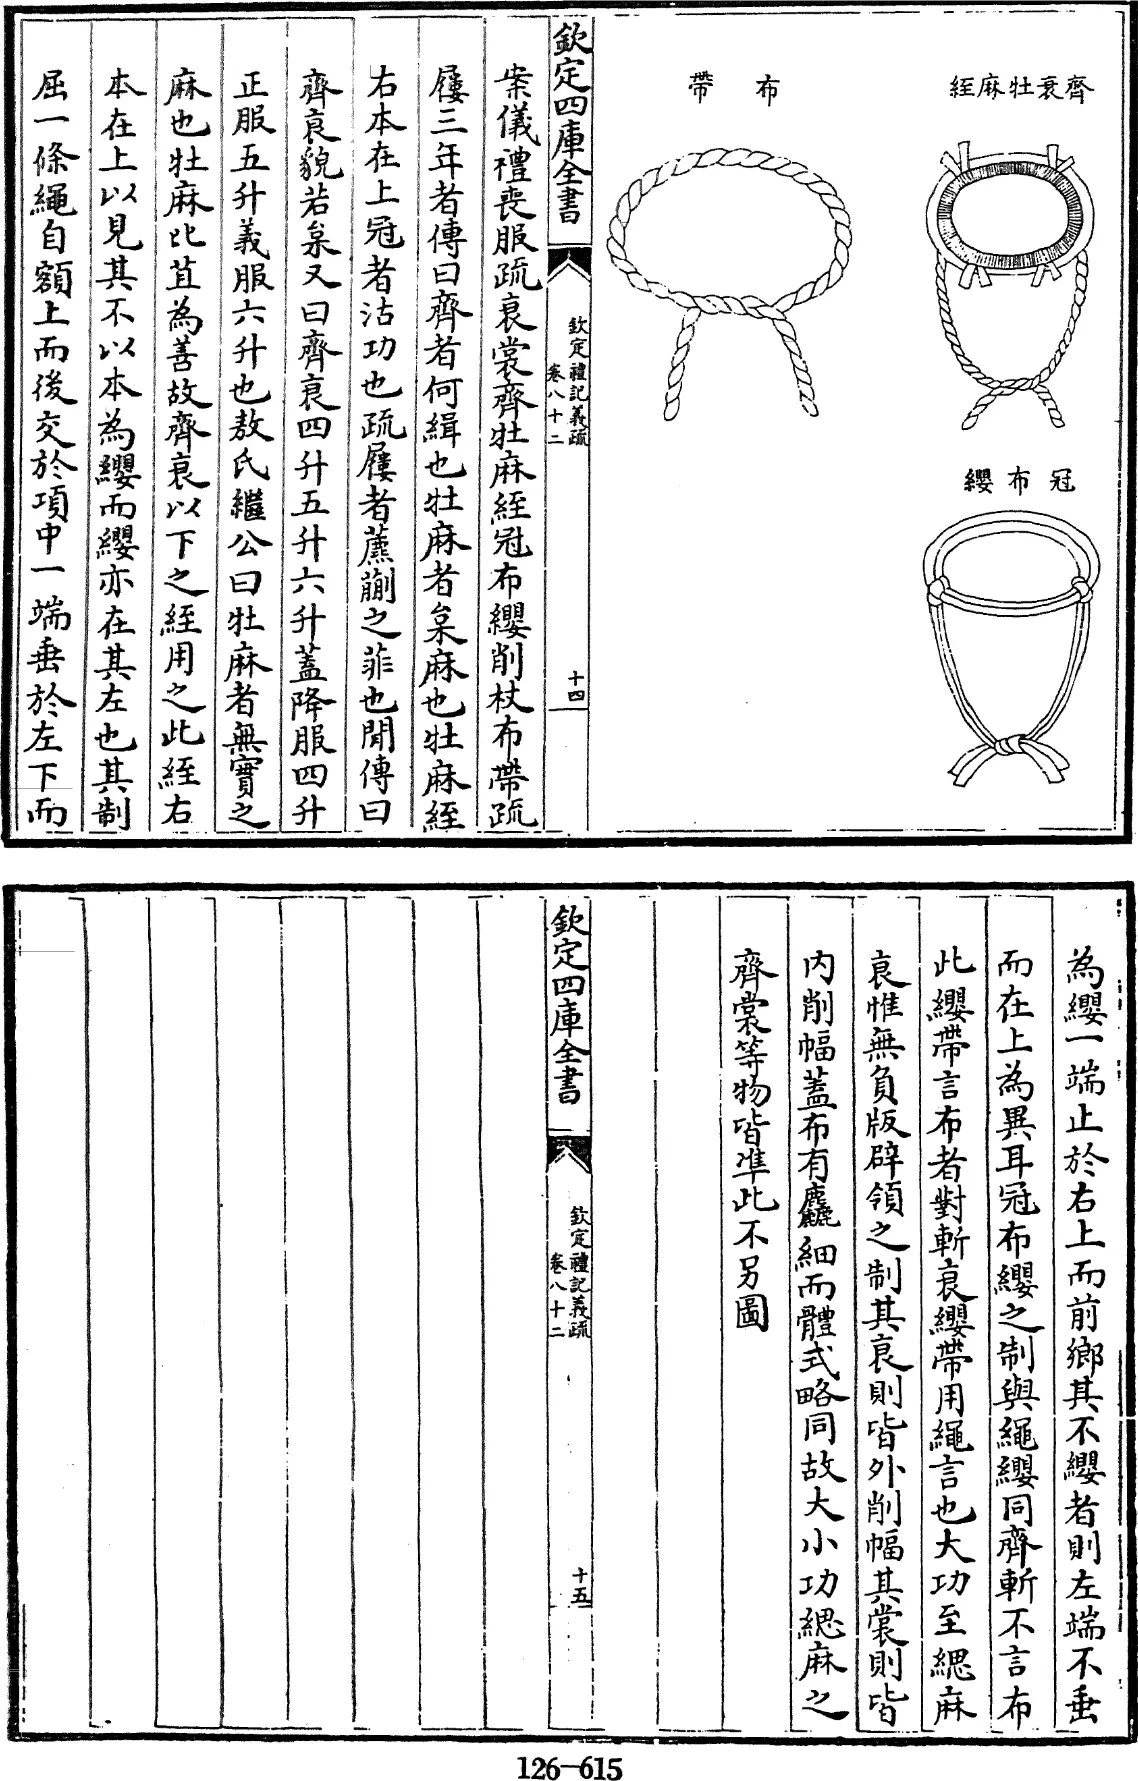 齊衰牡麻絰
冠布纓
布帶
欽定四庫全書
欽定禮記義疏
卷八十二
十四
案儀禮喪服疏衰裳齊牡麻絰冠布纓削杖布帶疏
屨三年者傳曰齊者何緝也牡麻者枲麻也牡麻絰
右本在上冠者沽功也疏屨者藨蒯之菲也閒傳曰
齊衰貌若枲又曰齊衰四升五升六升蓋降服四升
正服五升義服六升也敖氏繼公曰牡麻者無實之
麻也牡麻比苴為善故齊衰以下之絰用之此絰右
本在上以見其不以本為纓而纓亦在其左也其制
屈一條繩自額上而後交於項中一端垂於左下而
為纓一端止於右上而前鄉其不纓者則左端不垂
而在上為異耳冠布纓之制與繩纓同齊斬不言布
此纓帶言布者對斬衰纓帶用繩言也大功至緦麻
衰惟無負版辟領之制其衰則皆外削幅其裳則皆
内削幅蓋布有麤細而體式略同故大小功緦麻之
齊裳等物皆準此不另圖
欽定四庫全書
欽定禮記義疏
卷八十二
十五
126-615